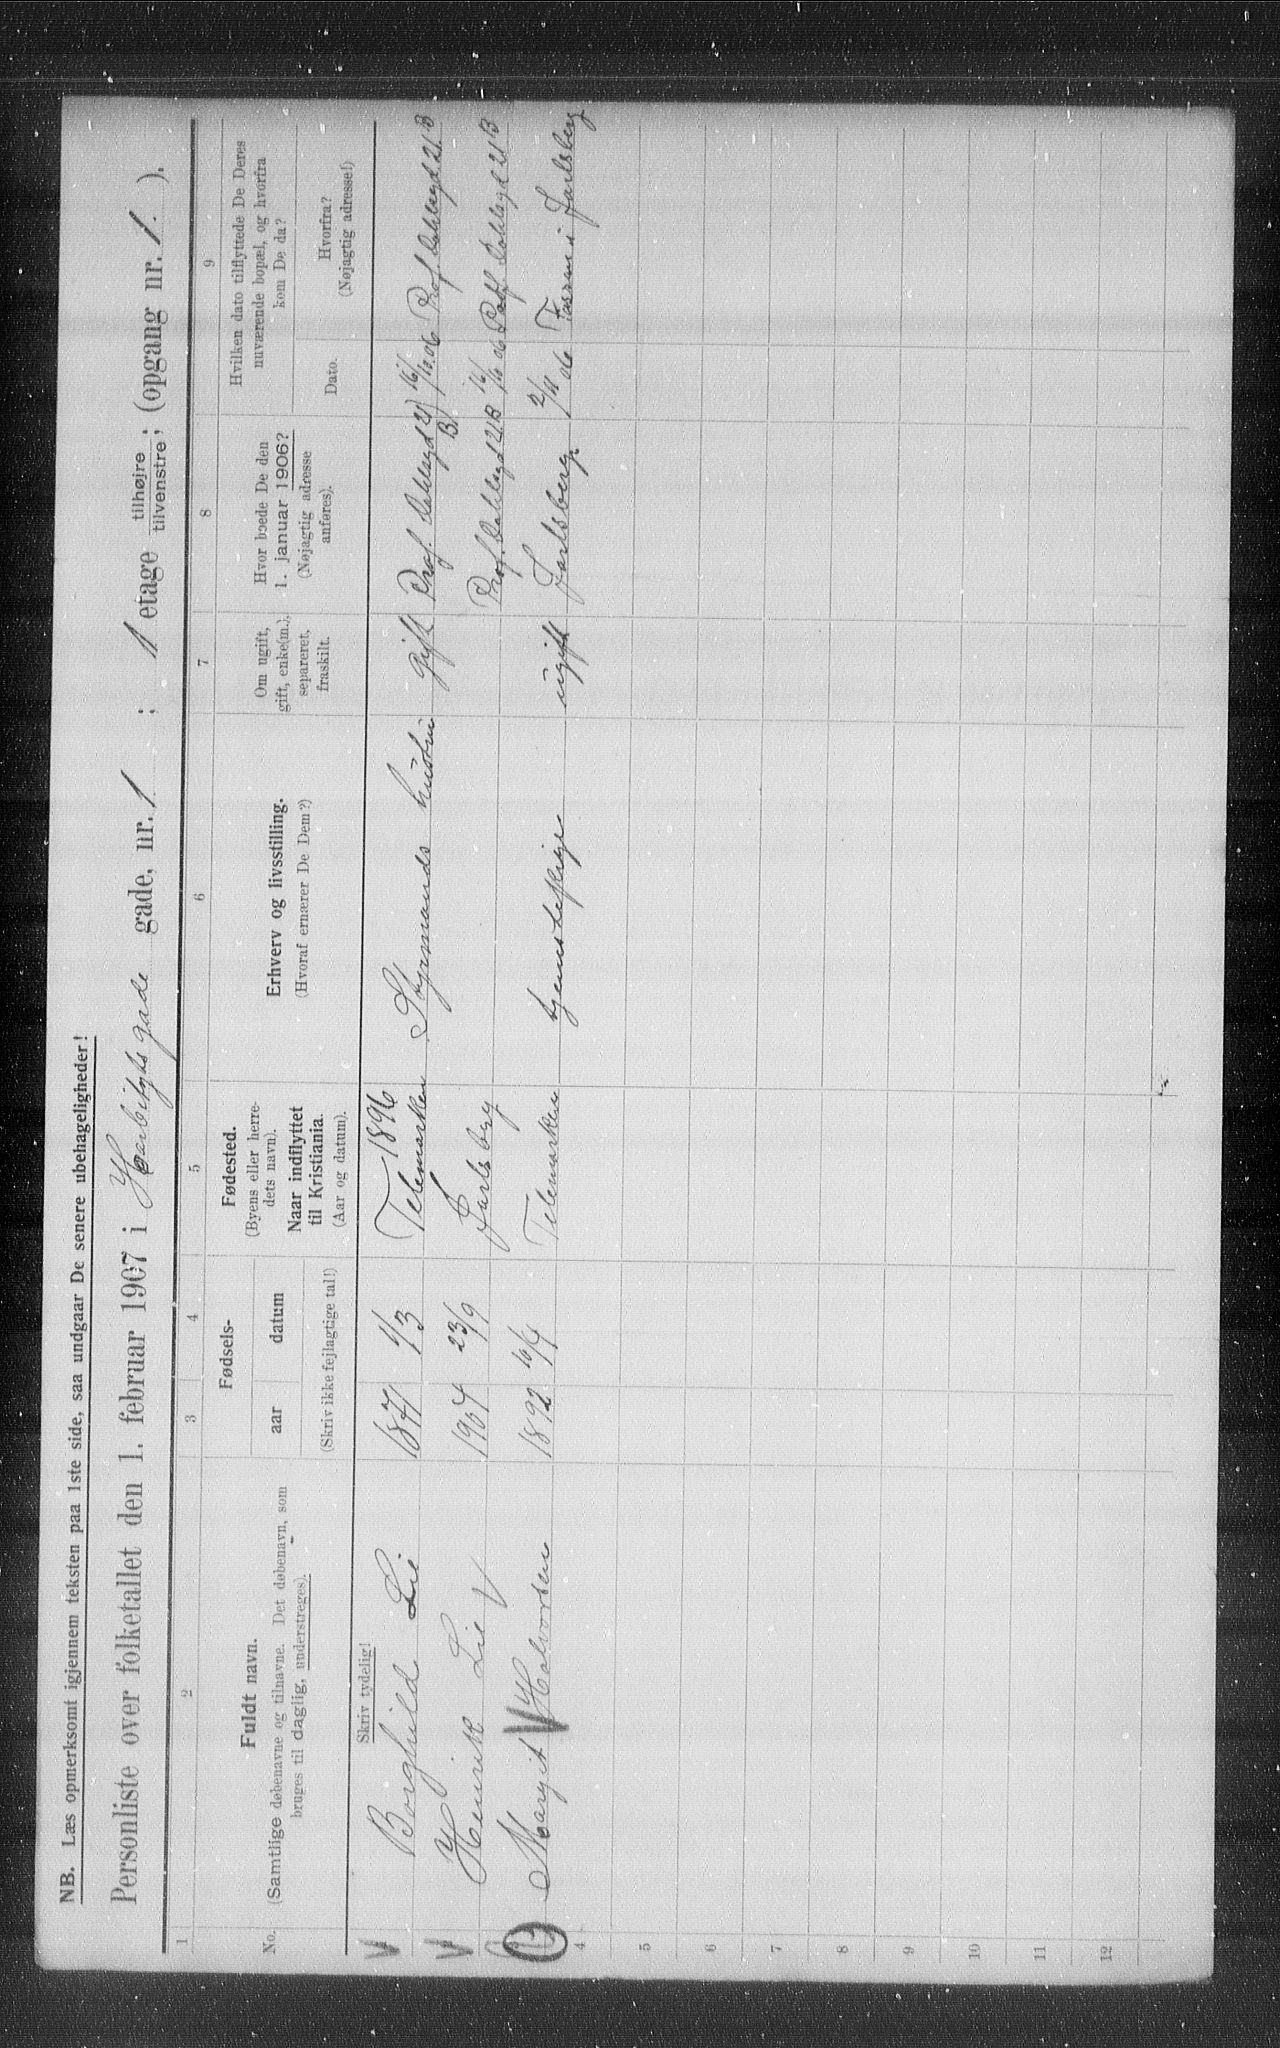 NB. Læs opmerksomt igjennem teksten paa 1ste side, saa undgaar De senere ubehageligheder!
Personliste over folketallet den 1. februar 1907 i Harbitzks gade gade, nr. 1 ; 1 etage tilhøjre tilvenstre; (opgang nr. 1. ).
1 2 3 4 5 6 7 8 9
No.
Fuldt navn.
(Samtlige døbenavne og tilnavne. Det døbenavn, som
bruges til daglig, understreges).
Fødsels-
aar datum
(Skriv ikke fejlagtige tal!)
Fødested.
(Byens eller herre-
dets navn).
Naar indflyttet
til Kristiania
(Aar og datum).
Erhverv og livsstilling.
(Hvoraf ernærer De Dem?)
Om ugift,
gift, enke(m.),
separeret,
fraskilt.
Hvor boede De den
1. januar 1906?
(Nøjagtig adresse
anføres).
Hvilken dato tilflyttede De Deres
nuværende bopæl, og hvorfra
kom De da?
Dato.
Hvorfra?
(Nøjagtig adresse!)
Skriv tydelig!
Borghild Lie 1877 1/3 Telemarken 1896 Styrmands hustru gift Prof. Dahlsgd 21 B 16/10 06 Prof. Dahlsgd 21 B
Henrik Lie 1904 23/9 Jarlsberg Prof. Dahlsgd 21 B 16/10 06 Prof. Dahlsgd 21 B
Margit Halvorsen 1892 10/4 Telemarken tjenestepige ugift Jarlsberg. 2/11 06 i Jarlsberg
4
5
6
7
8
9
10
11
12